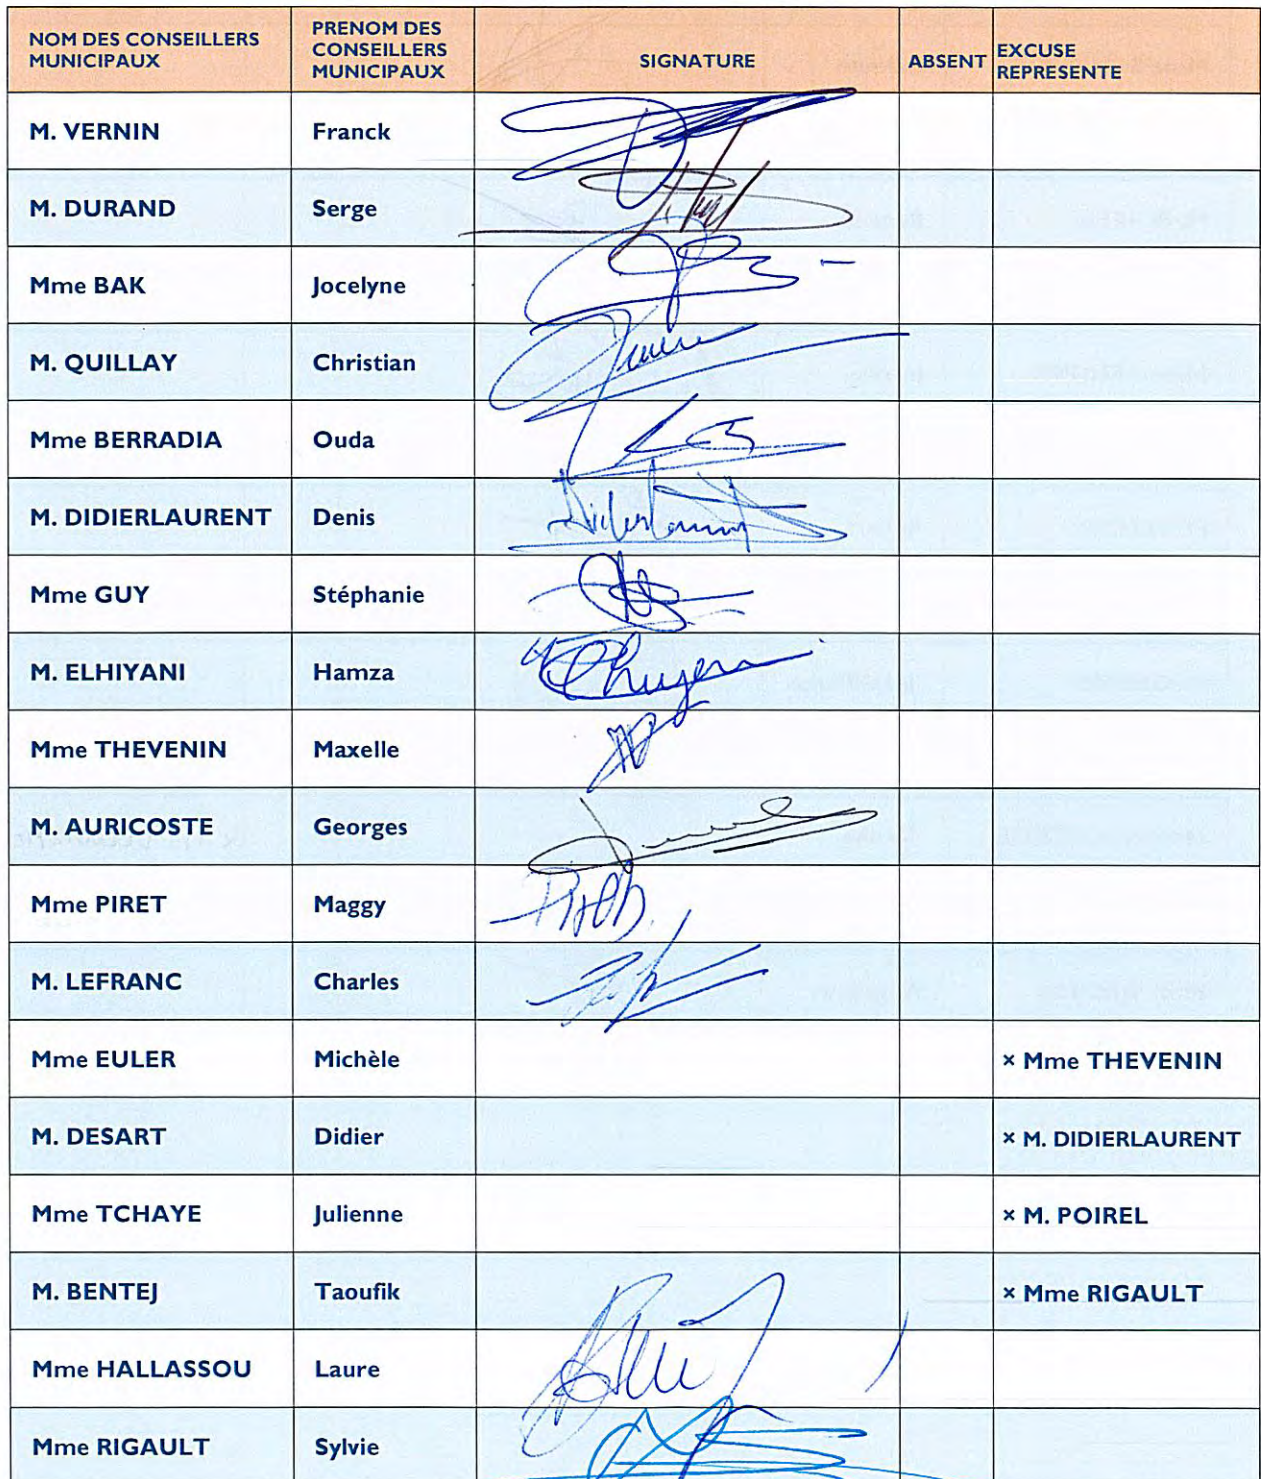 NOM DES CONSEILLERS MUNICIPAUX PRENOM DES CONSEILLERS MUNICIPAUX SIGNATURE ABSENT EXCUSE REPRESENTE
M. VERNIN Franck
M. DURAND Serge
Mme BAK Jocelyne
M. QUILLAY Christian
Mme BERRADIA Ouda
M. DIDIERLAURENT Denis
Mme GUY Stéphanie
M. ELHIYANI Hamza
Mme THEVENIN Maxelle
M. AURICOSTE Georges
Mme PIRET Maggy
M. LEFRANC Charles
Mme EULER Michèle × Mme THEVENIN
M. DESART Didier × M. DIDIERLAURENT
Mme TCHAYE Julienne × M. POIREL
M. BENTEJ Taoufik × Mme RIGAULT
Mme HALLASSOU Laure
Mme RIGAULT Sylvie